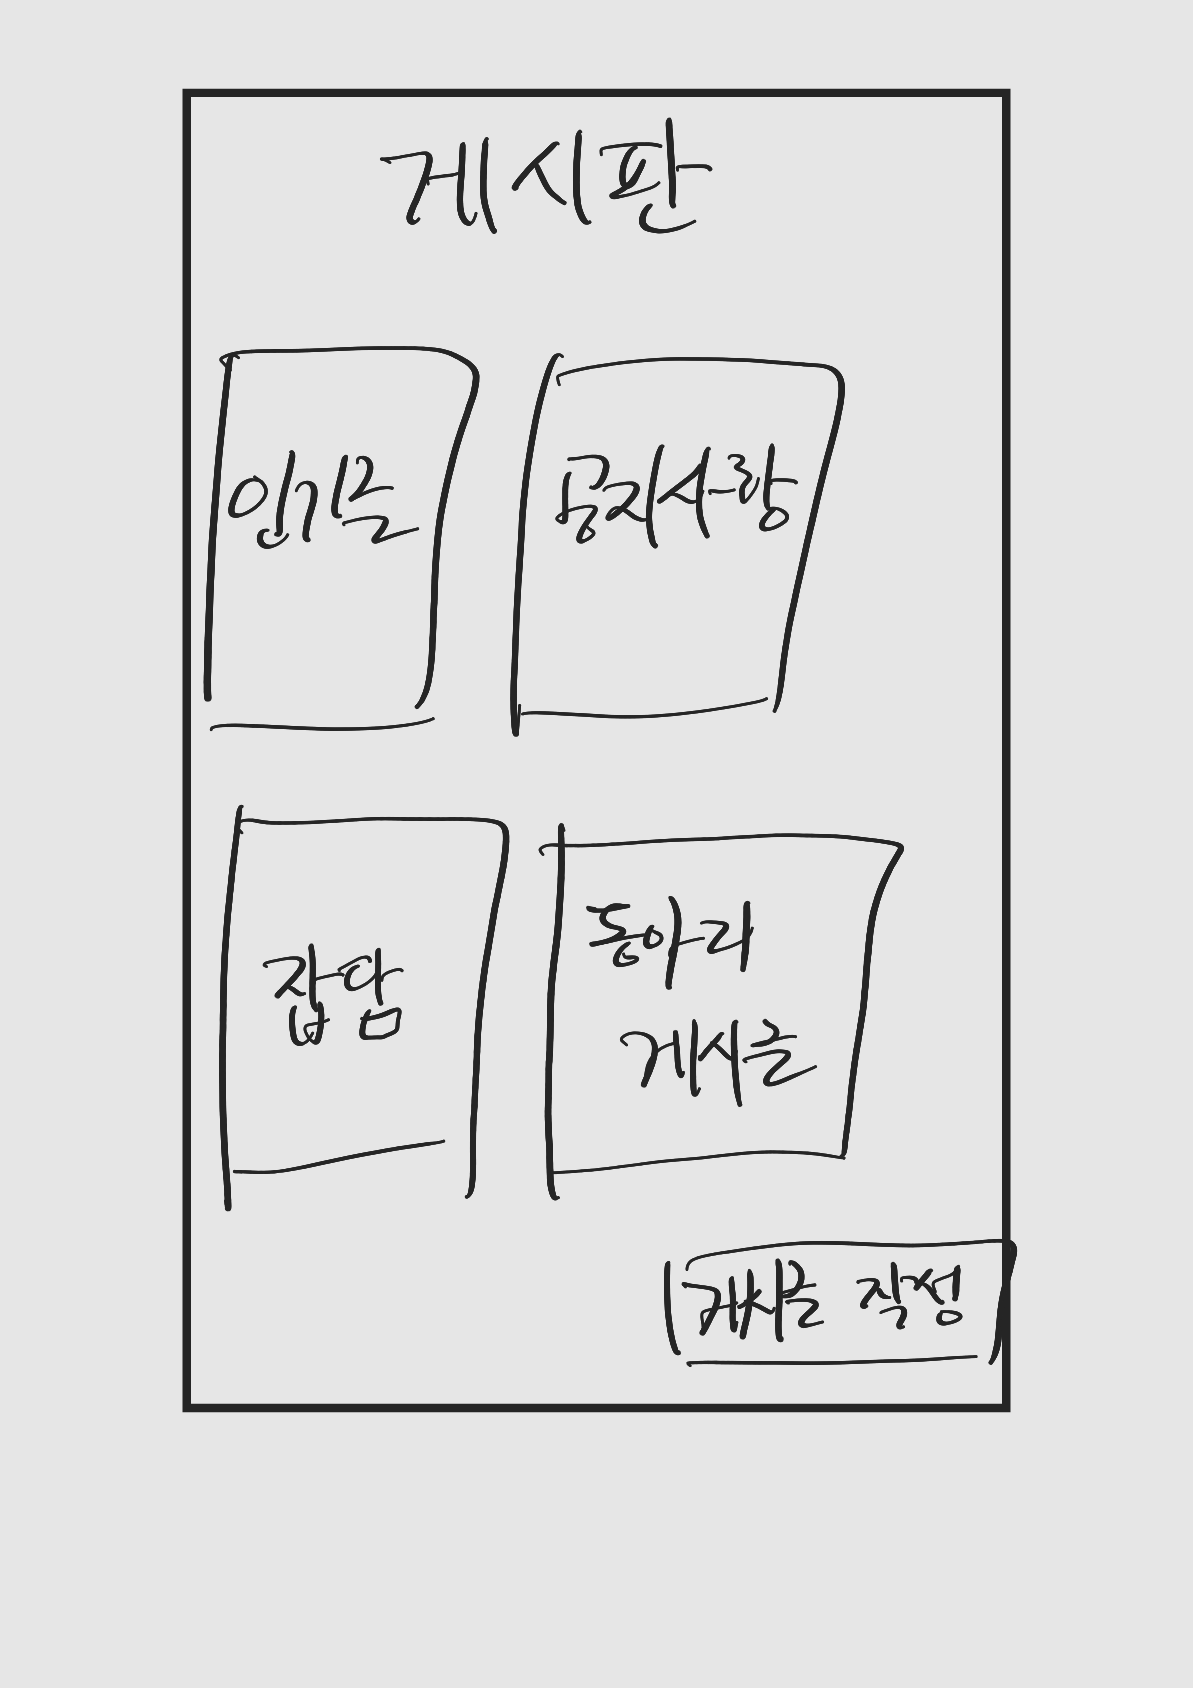 게시판
인기글
공지사항
잡담
동아리
게시글
게시글 작성